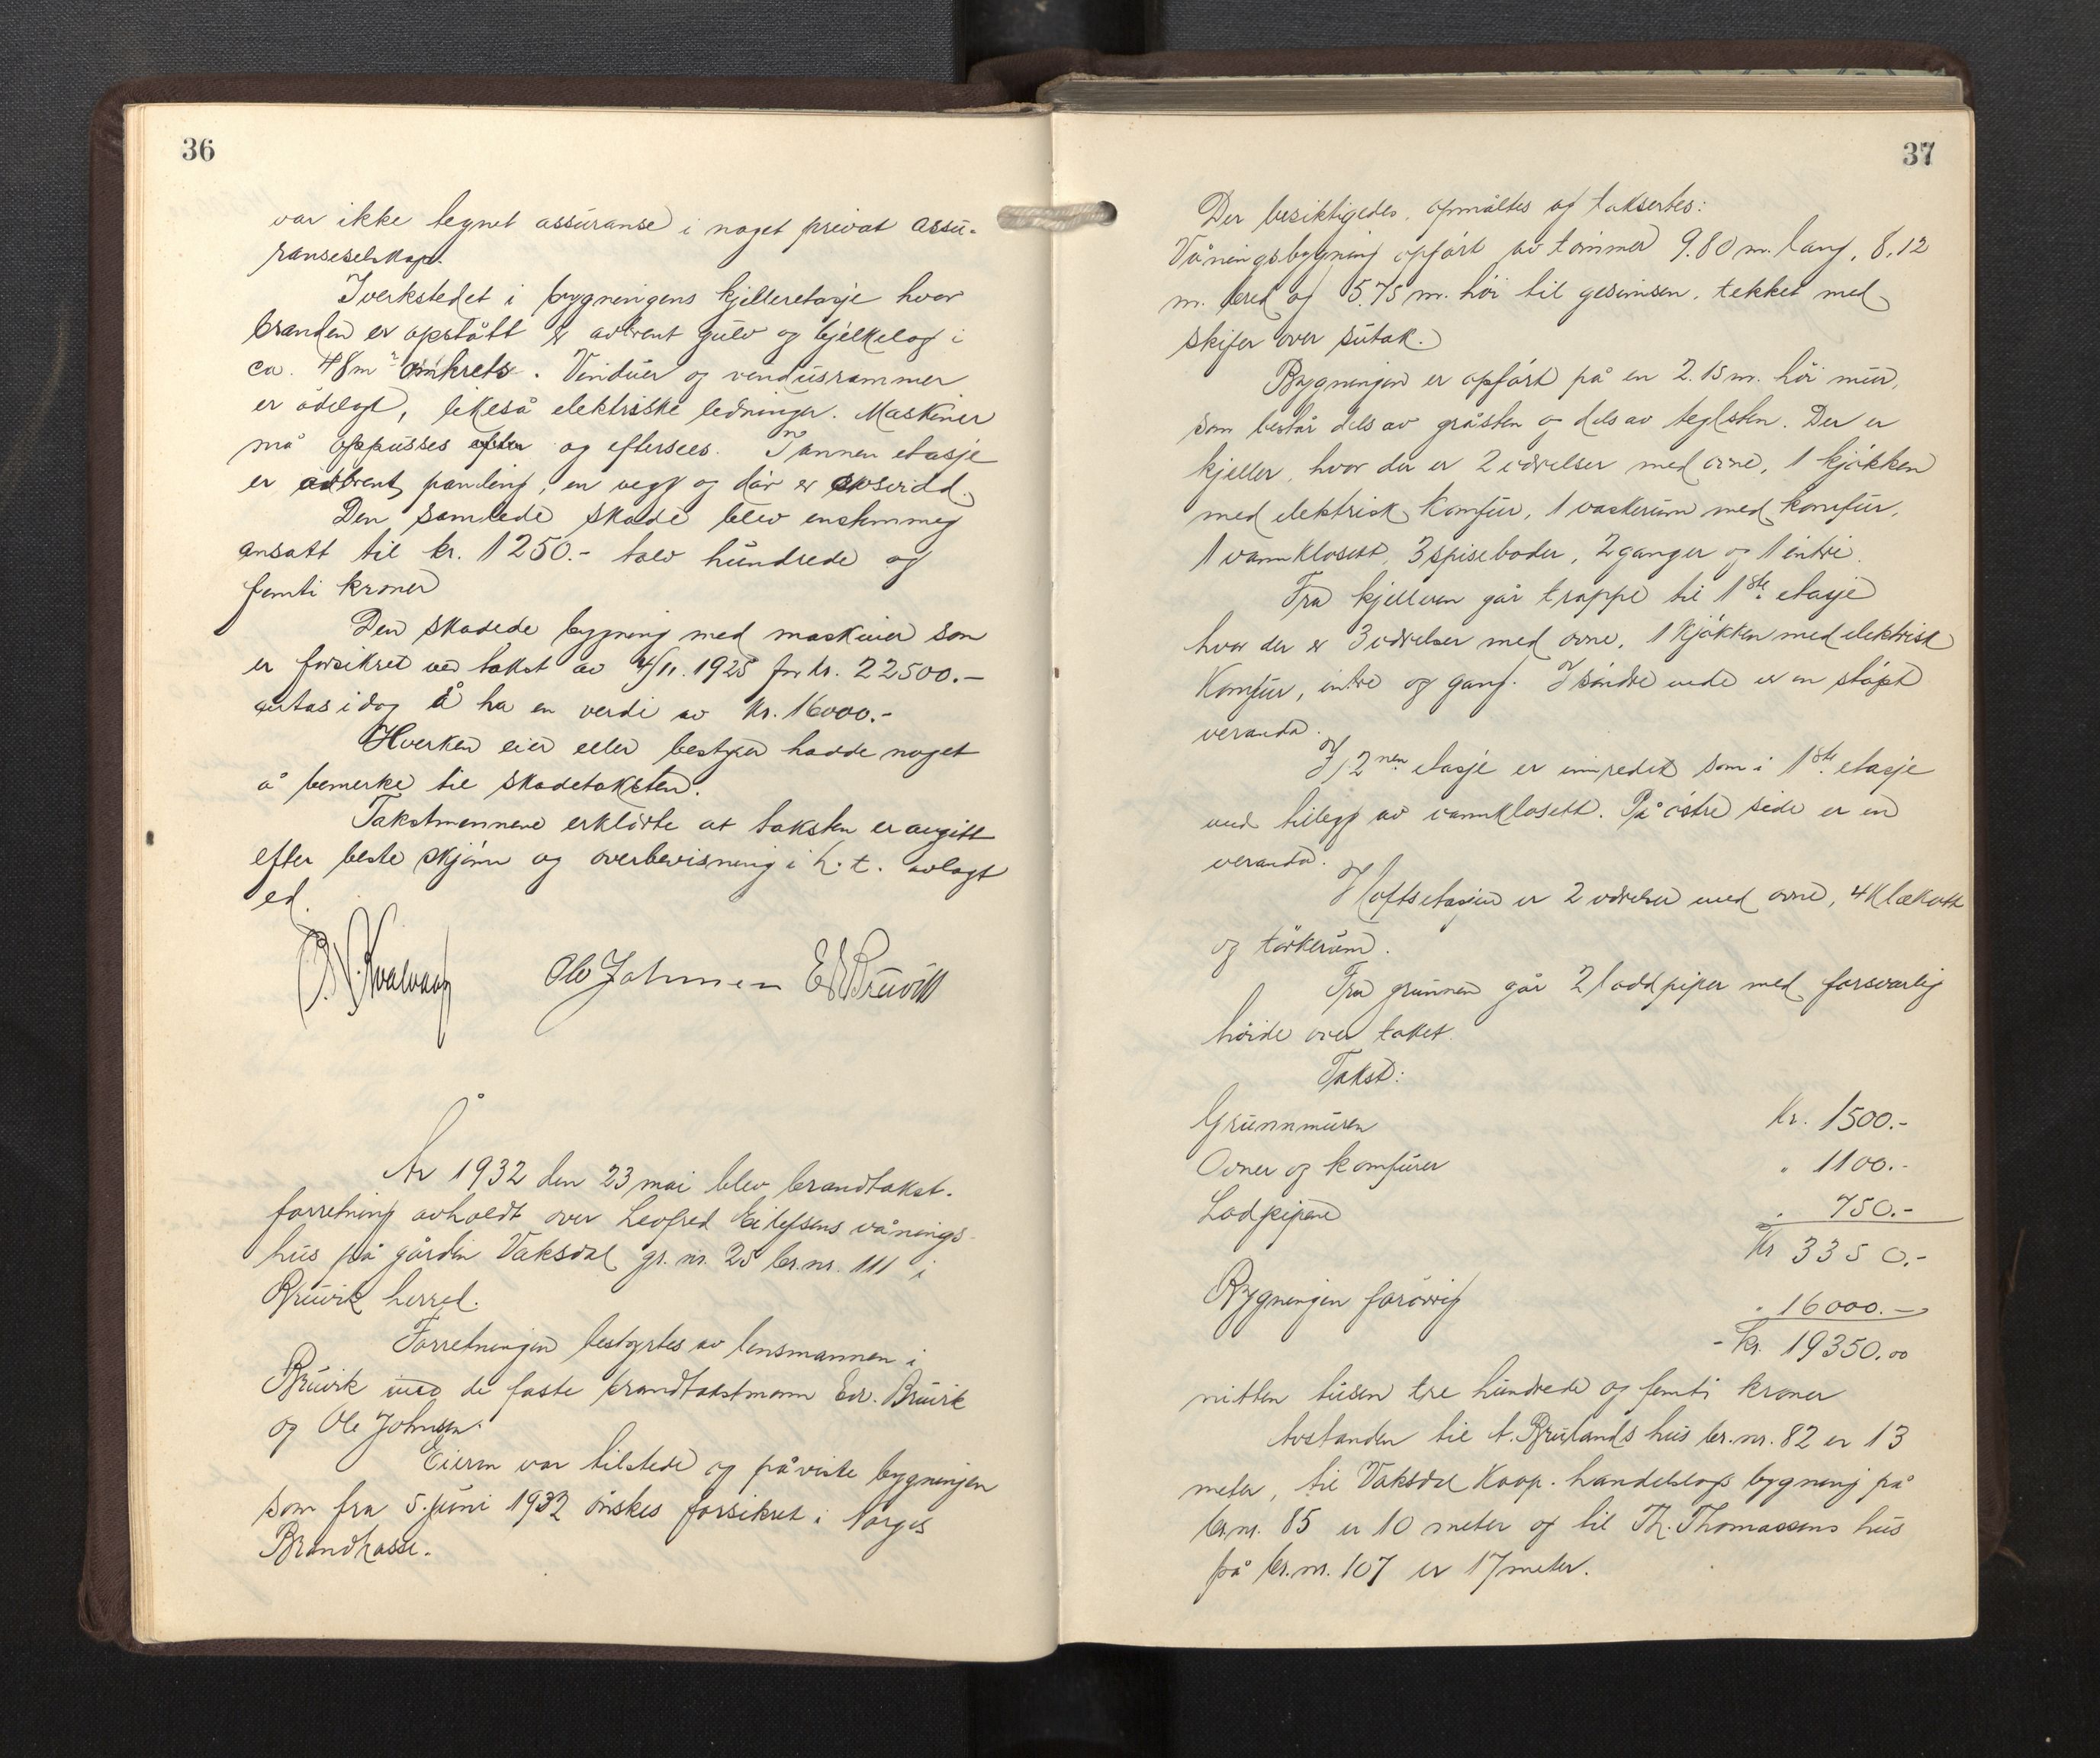 36
var ikke tegnet assuranse i noget privat assu-
ranseselskap.
I verkstedet i bygningens kjelleretasje hvor
branden er opstått er avbrent gulv og bjelkelag i
ca. 48 m² omkrets. Vinduer og vendusrammer
er ödelagt, likeså elektriske ledninger. Maskiner
må oppusses og eftersees. I annen etasje
er avbrent panling, en vegg og dör er svidd.
Den samlede skade blev enstemmeg
ansatt til kr. 1250.- tolv hundrede og
femti kroner
Den skadede bygning med maskiner som
er forsikret ved takst av 4/11. 1925 for kr. 22500.-
antas idag å ha en verdi av kr. 16000.-
Hverken eier eller bestyrer hadde noget
å bemerke til skadetaksten.
Takstmennene erklärte at taksten er avgitt
efter beste skjönn og overbevisning i h. t. avlagt
ed.
Ole Johnsen E Bruvik
År 1932 den 23 mai blev brandtakst-
forretning avholdt over Leofred Eilefsens vånings-
hus på gården Vaksdal gr. nr. 25 br. nr. 111 i
Bruvik herred.
Forretningen bestyrtes av lensmannen i
Bruvik med de faste brandtakstmenn Edv. Bruvik
og Ole Johnsen.
Eieren var tilstede og påviste bygningen
som fra 5. juni 1932 önskes forsikret i Norges
Brandkasse.
37
Der besiktigedes, opmåltes og taksertes:
Våningsbygning opfört av tömmer 9.80 m. lang, 8,12
m. bred og 5.75 m. höi til gesimsen, tekket med
skifer over sutak.
Bygningen er opfört på en 2.15 m. höi mur,
som består dels av gråsten og dels av teglsten. Der er
kjeller, hvor der er 2 värelser med ovne, 1 kjökken
med elektrisk komfur, 1 vaskerum med komfur,
1 vannklosett, 3 spiseboder, 2 ganger og 1 entre.
Fra kjelleren går trappe til 1ste etasje
hvor der er 3 värelser med ovne, 1 kjökken med elektrisk
komfur, entre og gang. I söndre ende er en stöpt
veranda.
I 2nen etasje er innredet som i 1ste etasje
med tillegg av vannklosett. På östre side er en
veranda.
I loftsetasjen er 2 värelser med ovne, 4 klækott
og törkerum.
Fra grunnen går 2 loddpiper med forsvarlig
höide over taket.
Takst:
Grunnmuren Kr. 1500.-
Ovner og komfurer " 1100.-
Lodpipene " 750.-
Kr 3350.-
Bygningen forövrig " 16000.-
- Kr. 19350.00
nitten tusen tre hundrede og femti kroner
Avstanden til A. Brulands hus br. nr. 82 er 13
meter, til Vaksdal Koop. handelslags bygning på
br. nr. 85 er 10 meter og til Th. Thomassens hus
på br. nr. 107 er 17 meter.